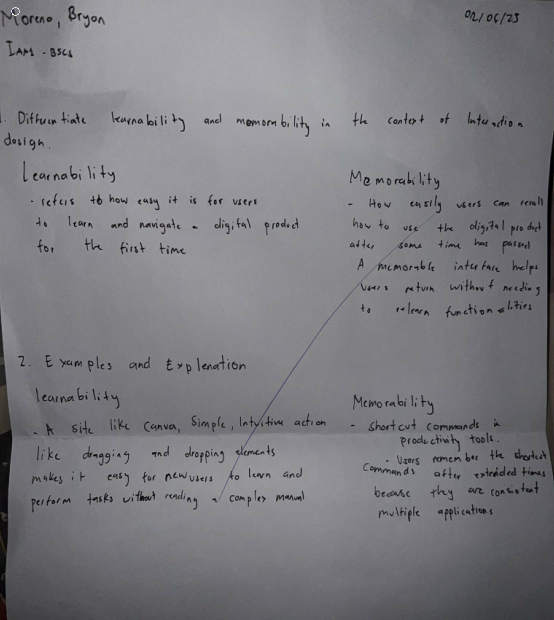 Moreno, Bryan
02/06/25
IAM1 - BSCS
1. Differentiate learnability and memorability in the context of Interaction
design.
Learnability
- refers to how easy it is for users
to learn and navigate a digital product
for the first time
Memorability
- How easily users can recall
how to use the digital product
after some time has passed
A memorable interface helps
users return without needing
to relearn functionalities
2. Examples and Explenation
learnability
- A site like Canva, Simple, Intuitive action
like dragging and dropping elements
makes it easy for new users to learn and
perform tasks without reading a complex manual
Memorability
- Shortcut commands in
productivity tools.
- Users remember the shortcut
commands after extended times
because they are consistent
multiple applications